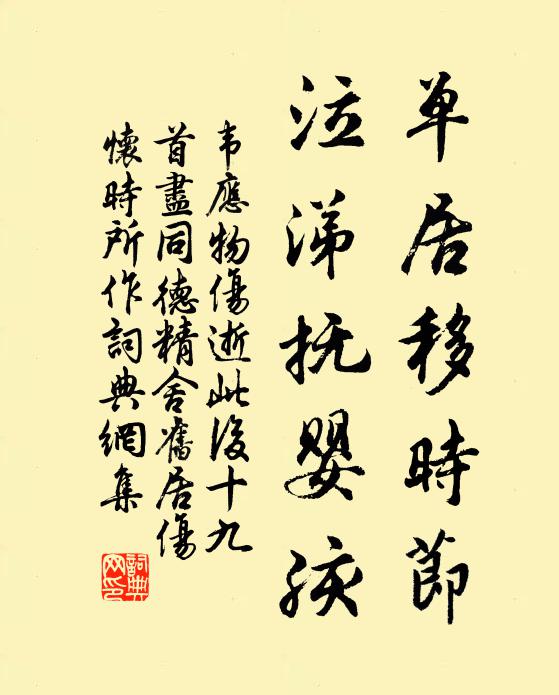 单居移時節
泣涕抚婴孩
韦應物傷逝此後十九
首盡同德精舍舊居傷
懷時所作詞典網集
詞典
网印